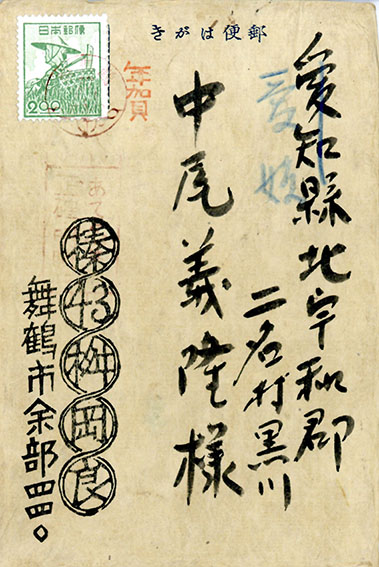 郵便はがき
日本郵便
2.00
年加賀
愛媛
愛知縣北宇和郡
二名村黒川
中尾義隆様
榛名桝岡良
舞鶴市余部四四〇